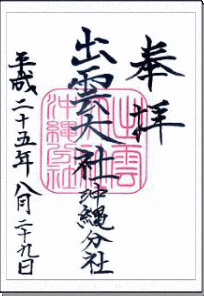 奉拝
出雲大社沖縄分社
平成二十五年八月二十九日
出雲
大社
沖縄分社